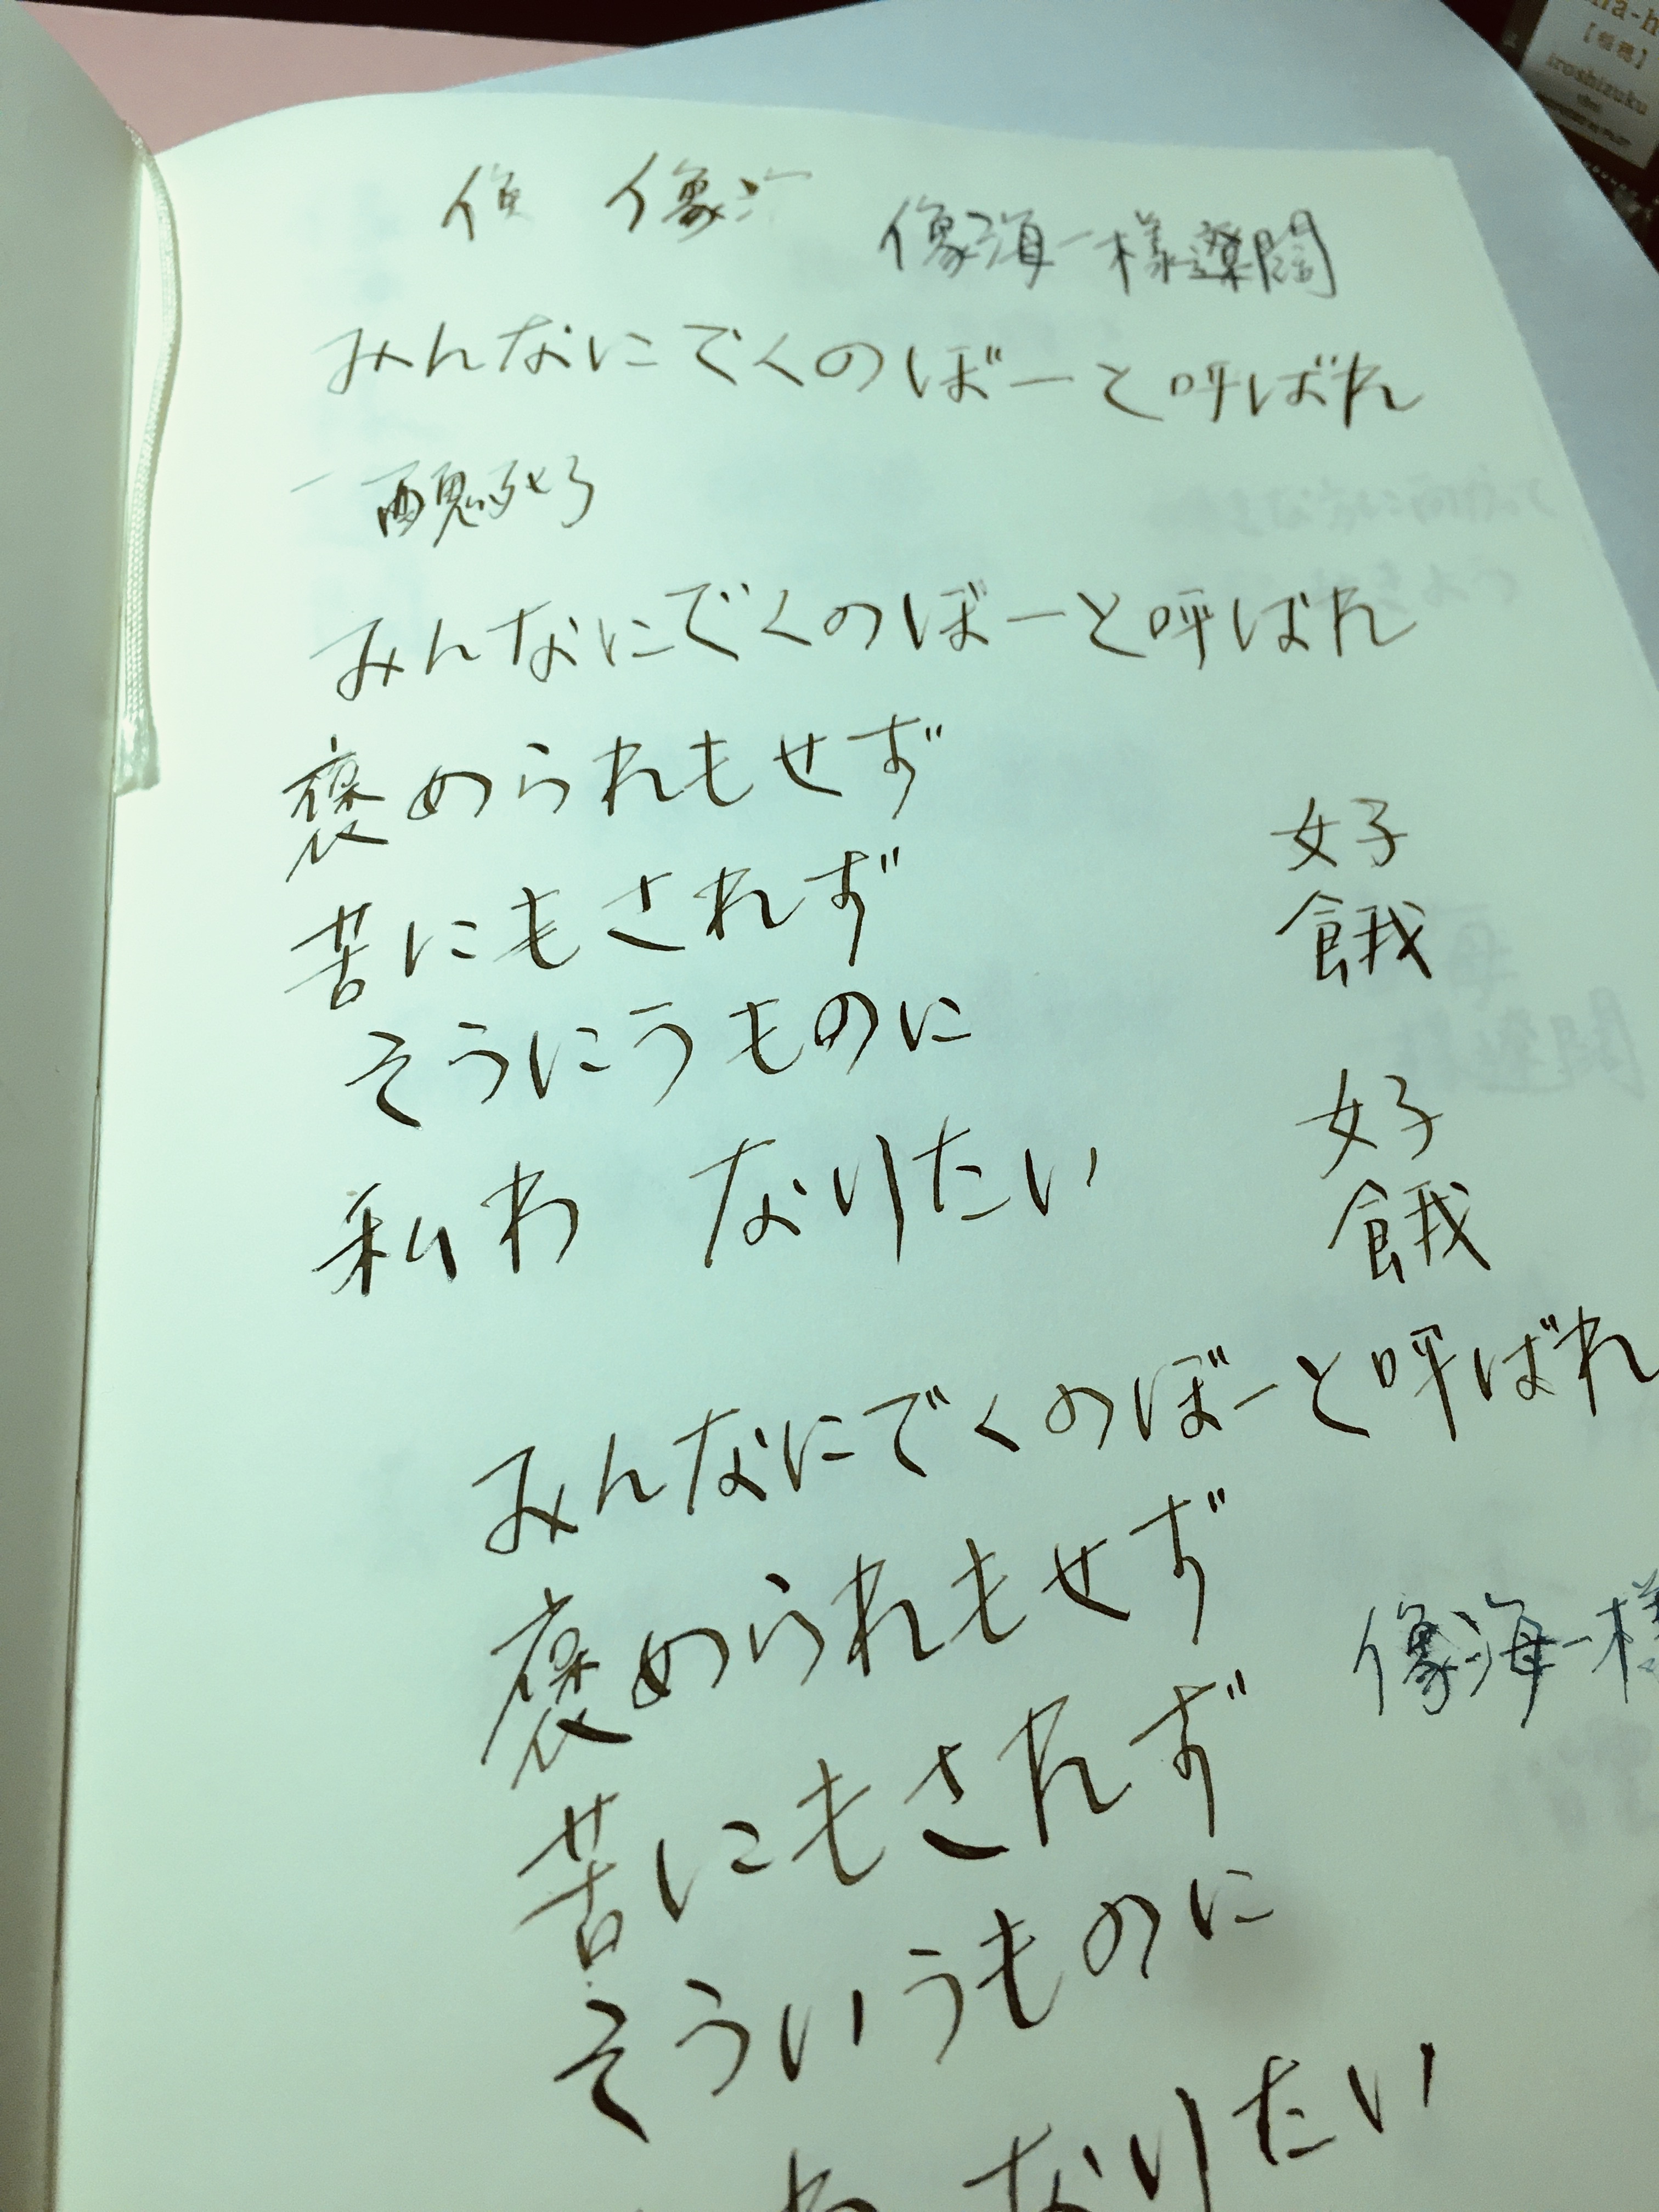 像海一様遼闊
みんなにでくのぼーと呼ばれ
醜死了
みんなにでくのぼーと呼ばれ
褒められもせず
苦にもされず
そうにうものに
私わ なりたい
好
餓
好
餓
みんなにでくのぼーと呼ばれ
褒められもせず
苦にもされず
像海一様
そういうものに
わ なりたい
iroshizuku